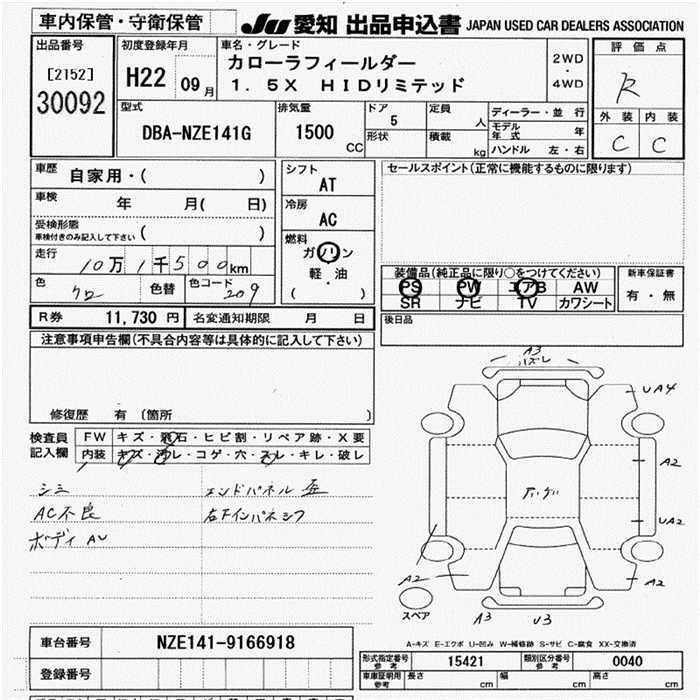 車内保管・守衛保管
JU 愛知 出品申込書 JAPAN USED CAR DEALERS ASSOCIATION
出品番号
[2152]
30092
初度登録年月
H22 09月
車名・グレード
カローラフィールダー
1.5X HIDリミテッド
2WD
・
4WD
評価点
R
外装 内装
C C
型式
DBA-NZE141G
排気量
1500 CC
ドア
5
形状
定員
人
積載
kg
ディーラー・並行
モデル年式 年
ハンドル 左・右
車歴
自家用・( )
車検
年 月( 日)
受検形態
車検付きのみ記入して下さい ( )
走行
10万1千500km
色
クロ
色替
色コード
209
シフト
AT
冷房
AC
燃料
ガソリン
軽・油
( )
セールスポイント(正常に機能するものに限ります)
装備品(純正品に限り○をつけてください)
PS PW エアB AW
SR ナビ TV カワシート
新車保証書
有・無
R券 11,730円 名変通知期限 月 日
後日品
注意事項申告欄(不具合内容等は具体的に記入して下さい)
修復歴 有 (箇所 )
検査員記入欄
FW キズ・飛石・ヒビ割・リペア跡・X要
内装 キズ・汚レ・コゲ・穴・スレ・キレ・破レ
シミ
AC不良
ボディ AU
エンドパネル 歪
右下インパネシフ
A3
ハズレ
UA4
A2
UA2
A2
A2
スペア
A3
U3
A-キズ E-エクボ U-凹み W-補修跡 S-サビ C-腐食 XX-交換済
車台番号 NZE141-9166918
登録番号
形式指定番号 参考 15421 類別区分番号 参考 0040
車庫証明用 参考 長さ cm 幅 cm 高さ cm